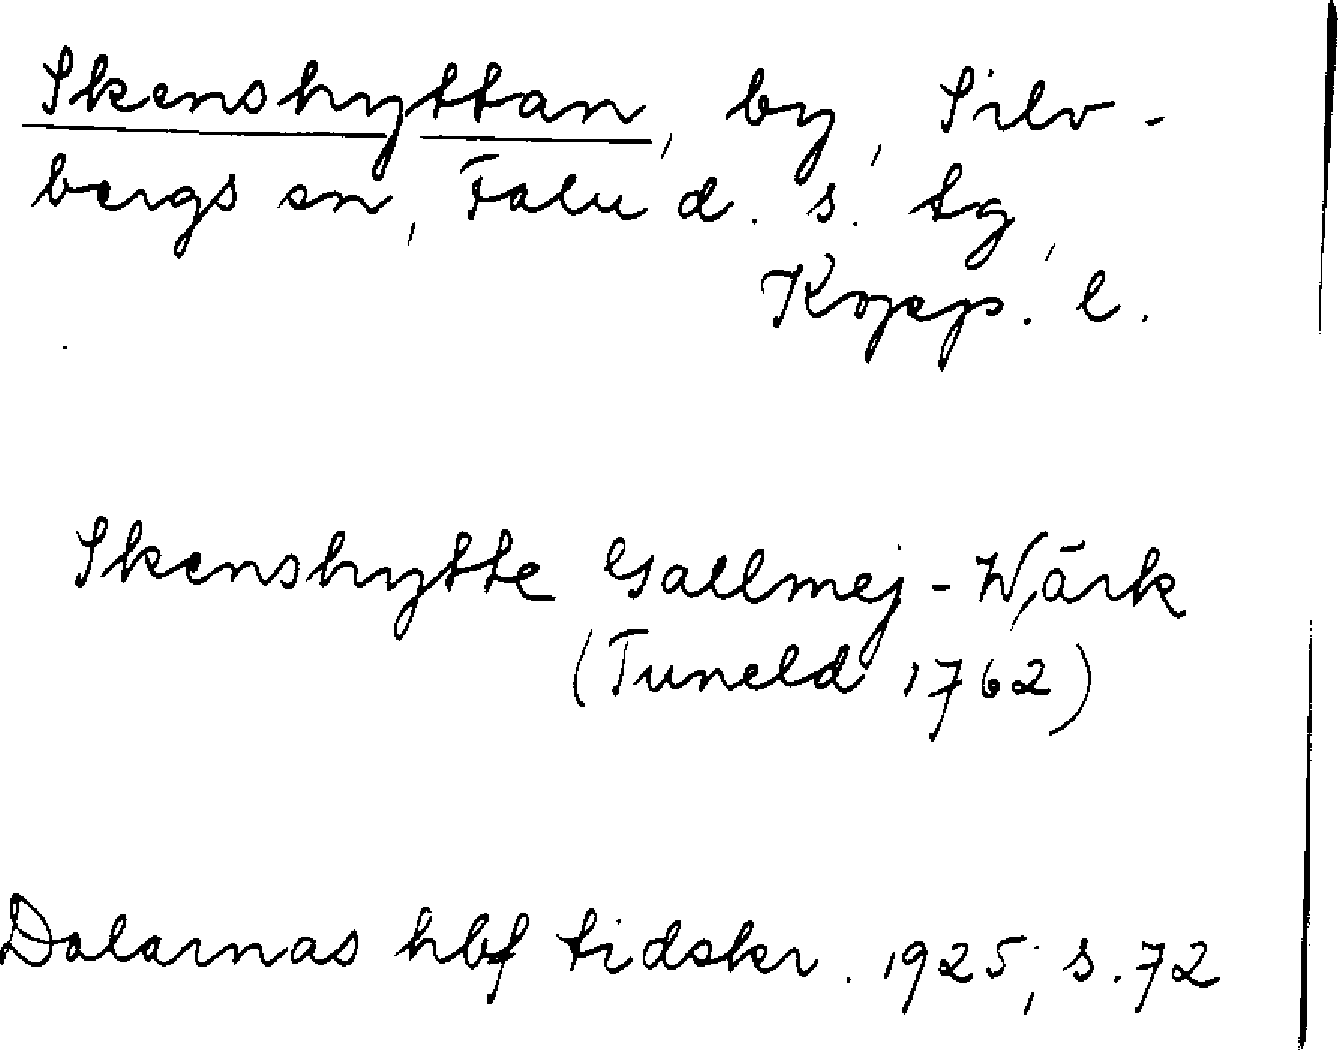 Skenshyttan, by, Silv-
bergs sn, Falu d. s. tg,
Kopp. l.
Skenshytte Gallmej-Wärk
(Tuneld 1762)
Dalarnas hbf tidskr. 1925, s. 72